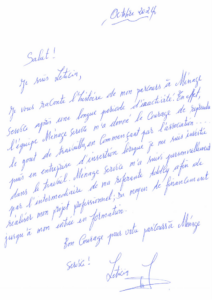 Octobre 2024
Salut !
Je suis Leticia,
Je vous raconte l'histoire de mon parcours à Ménage
Service après une longue période d'inactivité. En effet,
l'équipe Ménage Service m'a donné le courage de reprendre
le goût de travailler, en commençant par l'association...
puis en entreprise d'insertion lorsque je me suis investie
dans le travail. Ménage Service m'a suivi personnellement
par l'intermédiaire de ma référente afin de
réaliser mon projet professionnel; en moyen de financement
jusqu'à mon entrée en formation.
Bon Courage pour votre parcours à Ménage
Service !